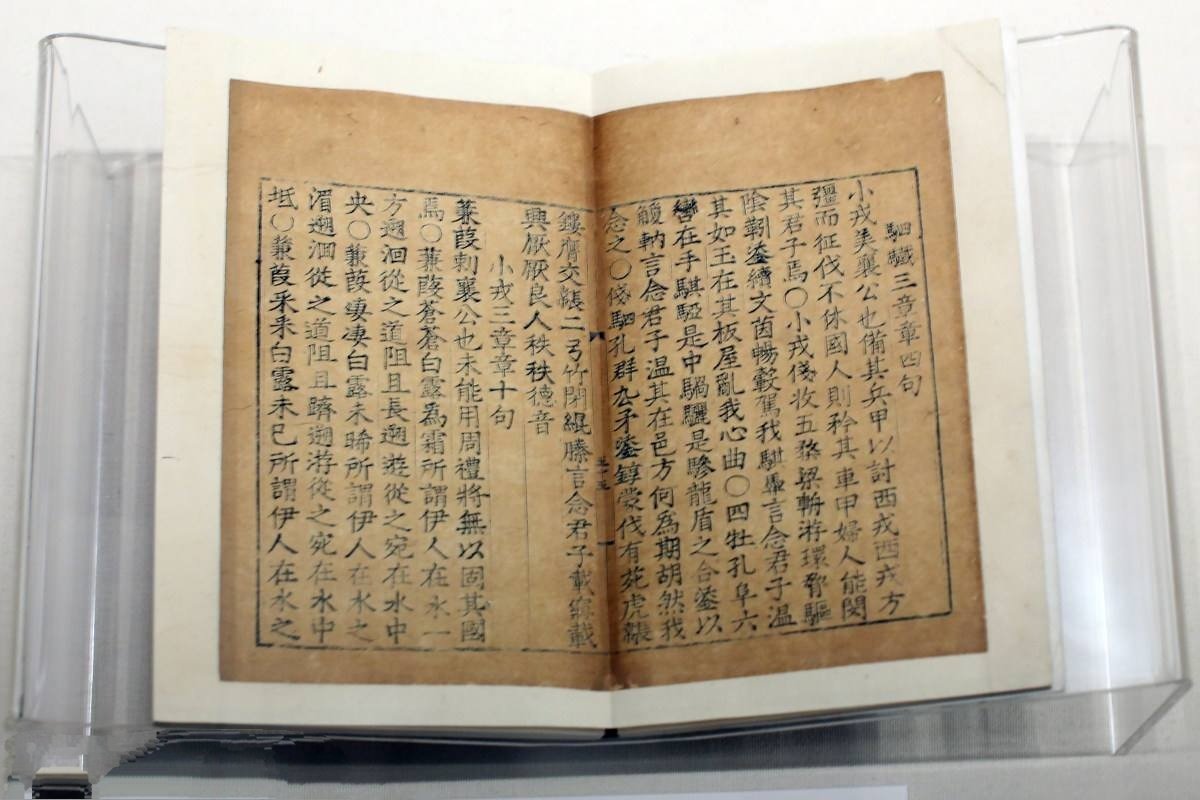 駟驖三章章四句
小戎美襄公也備其兵甲以討西戎西戎方
彊而征伐不休國人則矜其車甲婦人能閔
其君子焉○小戎俴收五楘梁輈游環脅驅
陰靷鋈續文茵暢轂駕我騏馵言念君子温
其如玉在其板屋亂我心曲○四牡孔阜六
轡在手騏駵是中騧驪是驂龍盾之合鋈以
觼軜言念君子温其在邑方何為期胡然我
念之○俴駟孔群厹矛鋈錞蒙伐有苑虎韔
鏤膺交韔二弓竹閉緄縢言念君子載寢載
興厭厭良人秩秩德音
小戎三章章十句
蒹葭刺襄公也未能用周禮將無以固其國
焉○蒹葭蒼蒼白露為霜所謂伊人在水一
方遡洄從之道阻且長遡遊從之宛在水中
央○蒹葭淒淒白露未晞所謂伊人在水之
湄遡洄從之道阻且躋遡游從之宛在水中
坻○蒹葭采采白露未已所謂伊人在水之